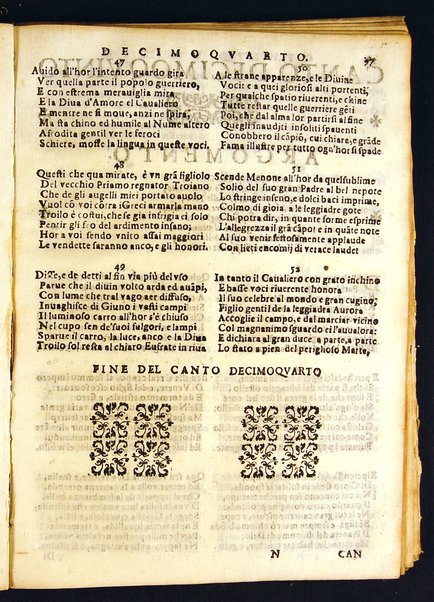 DECIMOQVARTO.
97
47
Auido all'hor l'intento guardo gira
Ver quella parte il popolo guerriero,
E con estrema merauiglia mira
E la Diua d'Amore el Caualiero
E mentre ne fi mote, anzi ne spira,
Ma sta chino ed humile al Nume altero
Afrodita gentil ver le feroci
Schiere, mosse la lingua in queste voci.
48
Questi che qua mirate, è vn grã figliolo
Del vecchio Priamo regnator Troiano
Che de gli augelli miri portato a uolo
Vuol cō voi cōra i Greci armar la mano
Troilo è costui, che se gia infegria ci folo
Pentir gli fè del ardimento insano;
Hor a voi sendo vnito assai maggiori
Le vendette saranno anco, e gli honori.
49
Disse, e de detti al fin via più del vso
Parue che il diuin volto arda ed auãpi,
Con lume che tral vago aer diffuso,
Inuaghisce di Giuno i vasti campi
Il luminoso carro all'hor s'è chiuso
Nel cupo sen de'suoi fulgori, e lampi
Sparue il carro, la luce, anco e la Diua
Troilo sol resta al chiaro Eufrate in riua
50
A le strane apparenze, e le Diuine
Voci e a quei gloriosi alti portenti,
Per qualche spatio riuerenti, e chine
Tutte restar quelle guerriere gēti
Poi, che dal alma lor partirsi al fine
Quegli inauditi insoliti spauenti
Conobbero il cãpiō, cui chiara, e grãde
Fama illustre per tutto ogn'hor si spade
51
Scende Menone all'hor da quel sublime
Solio del suo gran Padre al bel nepote
Lo stringe in seno, e dolci baci imprime,
Colmo di gioia a le leggiadre gote
Chi potra dir, in quante forme esprime
L'allegrezza il grã cãpo: e in quãte note
Al suo venir festosamente applaude
Con lieti encomij di verace laude
52
In tanto il Caualiero con grato inchino
E basse voci riuerente honora
Il suo celebre al mondo e gran cugino,
Figlio gentil de la leggiadra Aurora
Accoglie il campo, e dal marciar vicino
Col magnanimo sguardo ei l'aualora:
E dichiara al gran duce a parte, a parte
Lo stato a pien del periglioso Marte,
FINE DEL CANTO DECIMOQVARTO
N
CAN